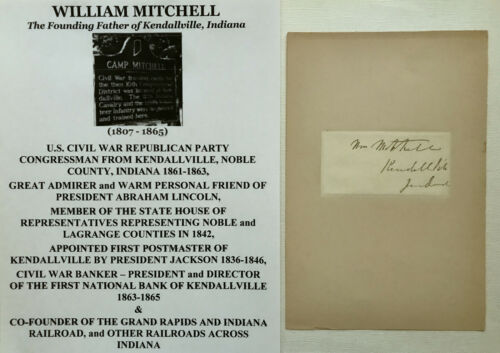 WILLIAM MITCHELL
The Founding Father of Kendallville, Indiana
CAMP MITCHELL
Civil War training camp for
the then 10th Congressional
District was located at Ken-
dallville. The
Cavalry and the
teer Infantry was
and trained here.
(1807 - 1865)
U.S. CIVIL WAR REPUBLICAN PARTY
CONGRESSMAN FROM KENDALLVILLE, NOBLE
COUNTY, INDIANA 1861-1863,
GREAT ADMIRER and WARM PERSONAL FRIEND OF
PRESIDENT ABRAHAM LINCOLN,
MEMBER OF THE STATE HOUSE OF
REPRESENTATIVES REPRESENTING NOBLE and
LAGRANGE COUNTIES IN 1842,
APPOINTED FIRST POSTMASTER OF
KENDALLVILLE BY PRESIDENT JACKSON 1836-1846,
CIVIL WAR BANKER – PRESIDENT and DIRECTOR
OF THE FIRST NATIONAL BANK OF KENDALLVILLE
1863-1865
&
CO-FOUNDER OF THE GRAND RAPIDS AND INDIANA
RAILROAD, and OTHER RAILROADS ACROSS
INDIANA
Wm Mitchell
Kendallville
Indiana